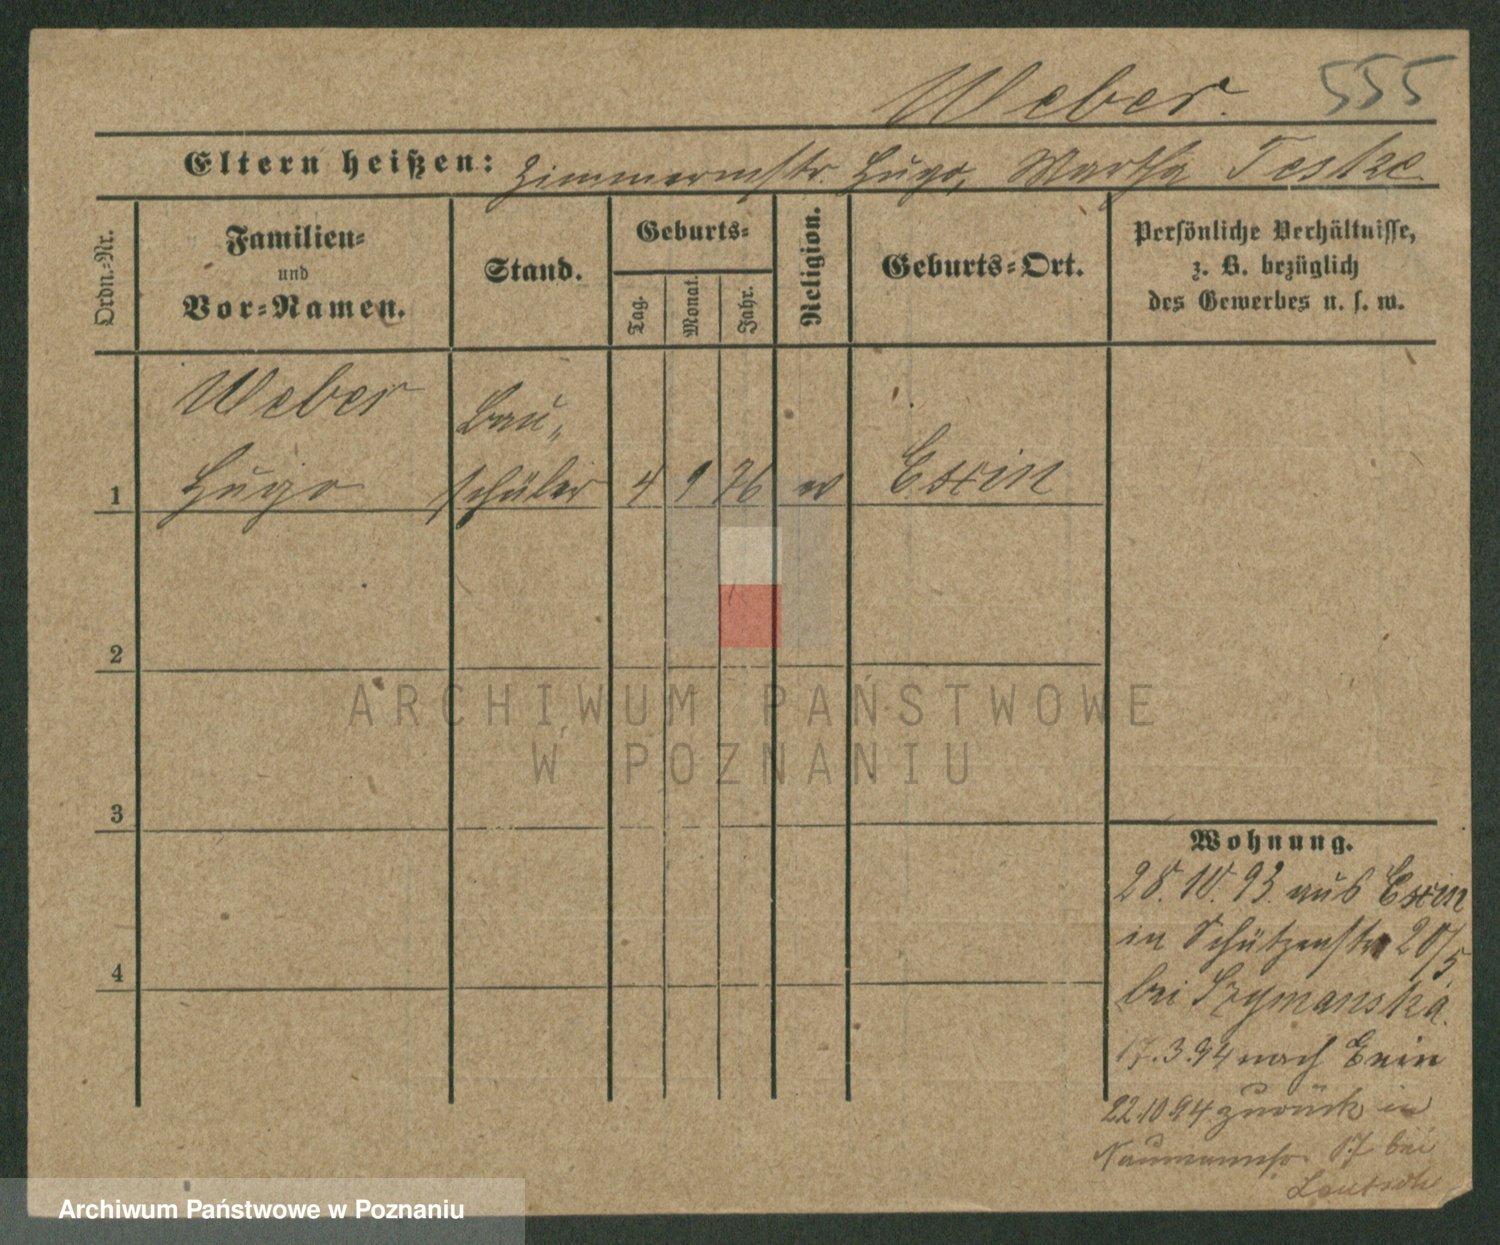 Weber. 555
Eltern heißen: Zimmermstr. Hugo, Martha Teske
Ordn.-Nr.
Familien-
und
Vor-Namen.
Stand.
Geburts-
Tag.
Monat.
Jahr.
Religion.
Geburts-Ort.
Persönliche Verhältnisse,
z. B. bezüglich
des Gewerbes u. s. w.
Weber Bau„
1 Hugo schüler 4 9 76 Exin
2
3
4
Wohnung.
28.10.93. aus Exin
in Schützenstr 20/5
bei Szymanska.
17.3.94 nach Exin
22.10.94. zurück in
Naumannstr. 17 bei
ARCHIWUM PAŃSTWOWE
W POZNANIU
Archiwum Państwowe w Poznaniu